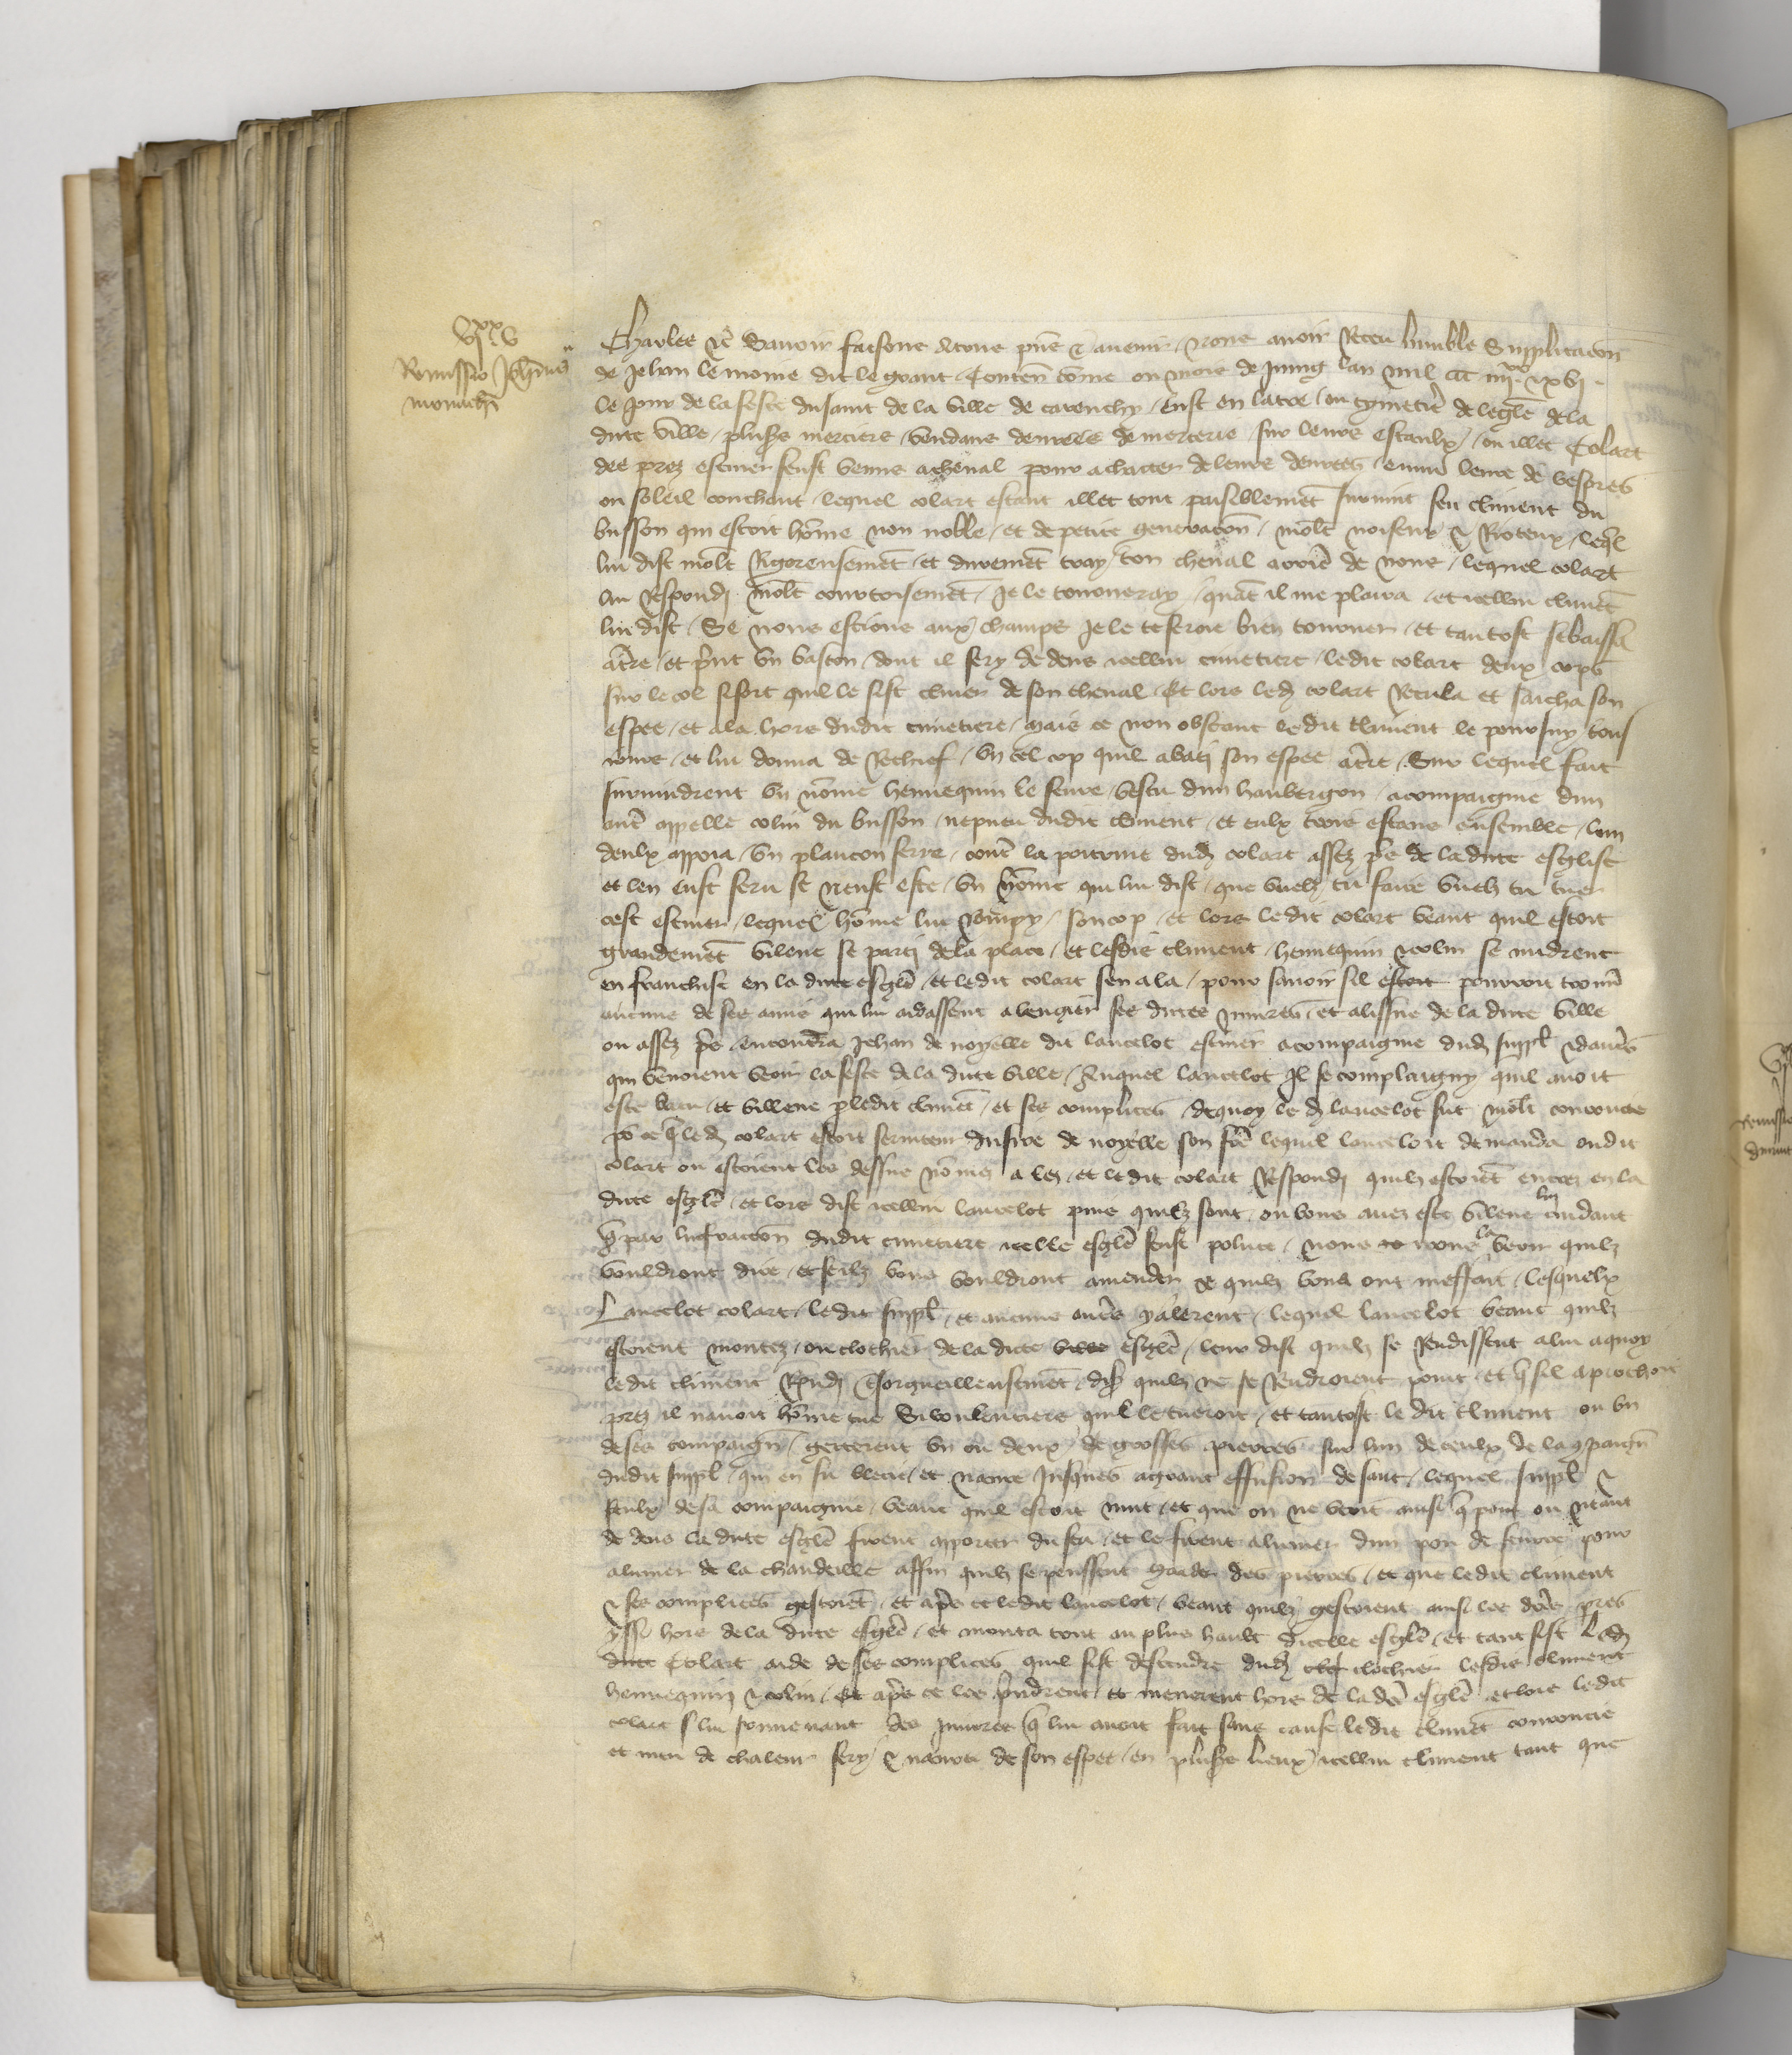 VIxx V
Remissio Johannis
monachi
Charles etc Savoir faisons a tous pñs & avenir / nous avoir Receu humble Supplicacōn
de Jehan le moine dit le grant / Conteñ cōme ou mois de Juing lan mil CCC IIIIxx XVI
le jour de la feste du saint de la ville de carenchy / eust en latre / ou cymetiē de legl̄e de la
dicte ville / plus̄s merciers / vendans denrees de mercerie sur leurs estaulx / ou illec Colart
des prez escuier feust venus a cheval pour achatter de leurs denrees / environ leure de vespres
ou soleil couchant / lequel colart estant illec tout paisiblemēt seurvint feu climent du
busson qui estoit hōme non noble / et de petite generacōn / mōlt noiseux & Rioteux / leq̄l
lui dist mōlt Rigoreusemēt / et duremēt tray ton cheval arrie de nous / lequel colart
lui Respondi mōlt courtoisemēt / Je le tourneray / quāt il me plaira / et icellui climēt
lui dist / Se nous estions aux champs Je le te feroie bien tourner / et tantost se baissa
a t̄re / et p̄nt un baston / dont il fery dedens icellui cimetiere / ledit colart deux cops
sur le col si fort quil le fist cliner de son cheval / Et lors led colart Recula et sacha son
espee / et ala hors dudit cimetiere / mais ce non obstant ledit climent le poursuy tous
jours / et lui donna de Rechief / un tel cop quil abati son espee a t̄re / Sur lequel fait
survindrent un nōme hennequin le fevre / vestu dun haubergon / acompaignie dun
aut̄ appelle colin du busson / nepveu dudit climent / et eulx trois estans ensemble / lun
deulx appoia / un plancon ferre / cont̄ la poitrine dud colart assez p̄s de la dicte esglise
et len eust feru se neust este / un hōme qui lui dist / que vuelz tu faire vuelz tu tuer
cest escuier / lequel hōme lui Rompy / son cop / et lors ledit colart veant quil estoit
grandemēt vilene se parti de la place / et lesdis climent / hennequin & colin se midrent
en franchise en la dicte esgl̄e / et ledit colart sen ala / pour savoir sil estoit pourroit trouv̄
aucuns de ses amis qui lui aidassent a vengier ses dictes injures / et a lissue de la dicte ville
ou assez p̄s / encontra Jehan de noyelle dit lancelot escuier acompaigne dud suppl̄ & daut̄s
qui venoient veoir la feste de la dicte ville / Auquel lancelot Il se complaigny quil avoit
este batu / et villene p ledit climēt / et ses complices / dequoy le d lancelot fut mōlt courroucie
po' ce q̄ led colart estoit serviteur du sire de noyelle son fr̄e lequel lancelot demanda audit
colart ou estoient les dessus nōmez a lez / et ledit colart Respondi quilz estoiēt entrez en la
dicte esgl̄e / et lors dist icellui lancelot puis quilz sont / ou vous avez este vilene lui cuidant
q̄ par linfraccōn dudit cimetiere icelle esgl̄e feust polute / nous irons la veoir quilz
vouldront dire / et silz vous vouldront amender ce quilz vous ont meffait / lesquelx
Lancelot colart / ledit suppl̄ / et aucuns aut̄s y alerent / lequel lancelot veant quilz
estoient montez / ou clochier de la dicte ville esgl̄e / leur dist quilz se Rendissent a lui a quoy
ledit climent Rp̄ndi orgueilleusemēt / dist quilz ne se Rendroient point / et q̄ sil aprochoit
prez il navoit hōme tue Si voulentiers quil le tueroit / et tantost ledit climent ou un
de ses compaign̄ / getterent un ou deux de grosses pierres sur lun de ceulx de la cōpaign̄
dudit suppl̄ / qui en fu blecie / et navre Jusques a grant effusion de sanc / lequel suppl̄ &
ceulx de sa compaignie / veant quil estoit nuit / et que on ne veoit
de dens la dicte esgl̄e firent apporter du feu / et le firent alumer dun pou de feurre pour
alumer de la chandeille affin quilz se peussent garder des pierres / et que ledit climent
& ses complices gettoiēt / et ap̄s ce ledit lancelot / veant quilz gettoient ainsi les d̄ces pierres
yssi hors de la dicte esgl̄e / et monta tout au plus hault dicelle esgl̄e / et tant fist led
dicte Colart aide de ses complices quil fist descendre dud clochier lesdis climent
hennequin & colin / Et ap̄s ce les prindrent et menerent hors de la d̄ce esgl̄e / et lors ledit
colart / lui souvenant des Injures q̄ lui avoit fait sans cause ledit climēt courroucie
et meu de chaleur fery / & navra de son espee / en plus̄s lieux icellui climent tant que